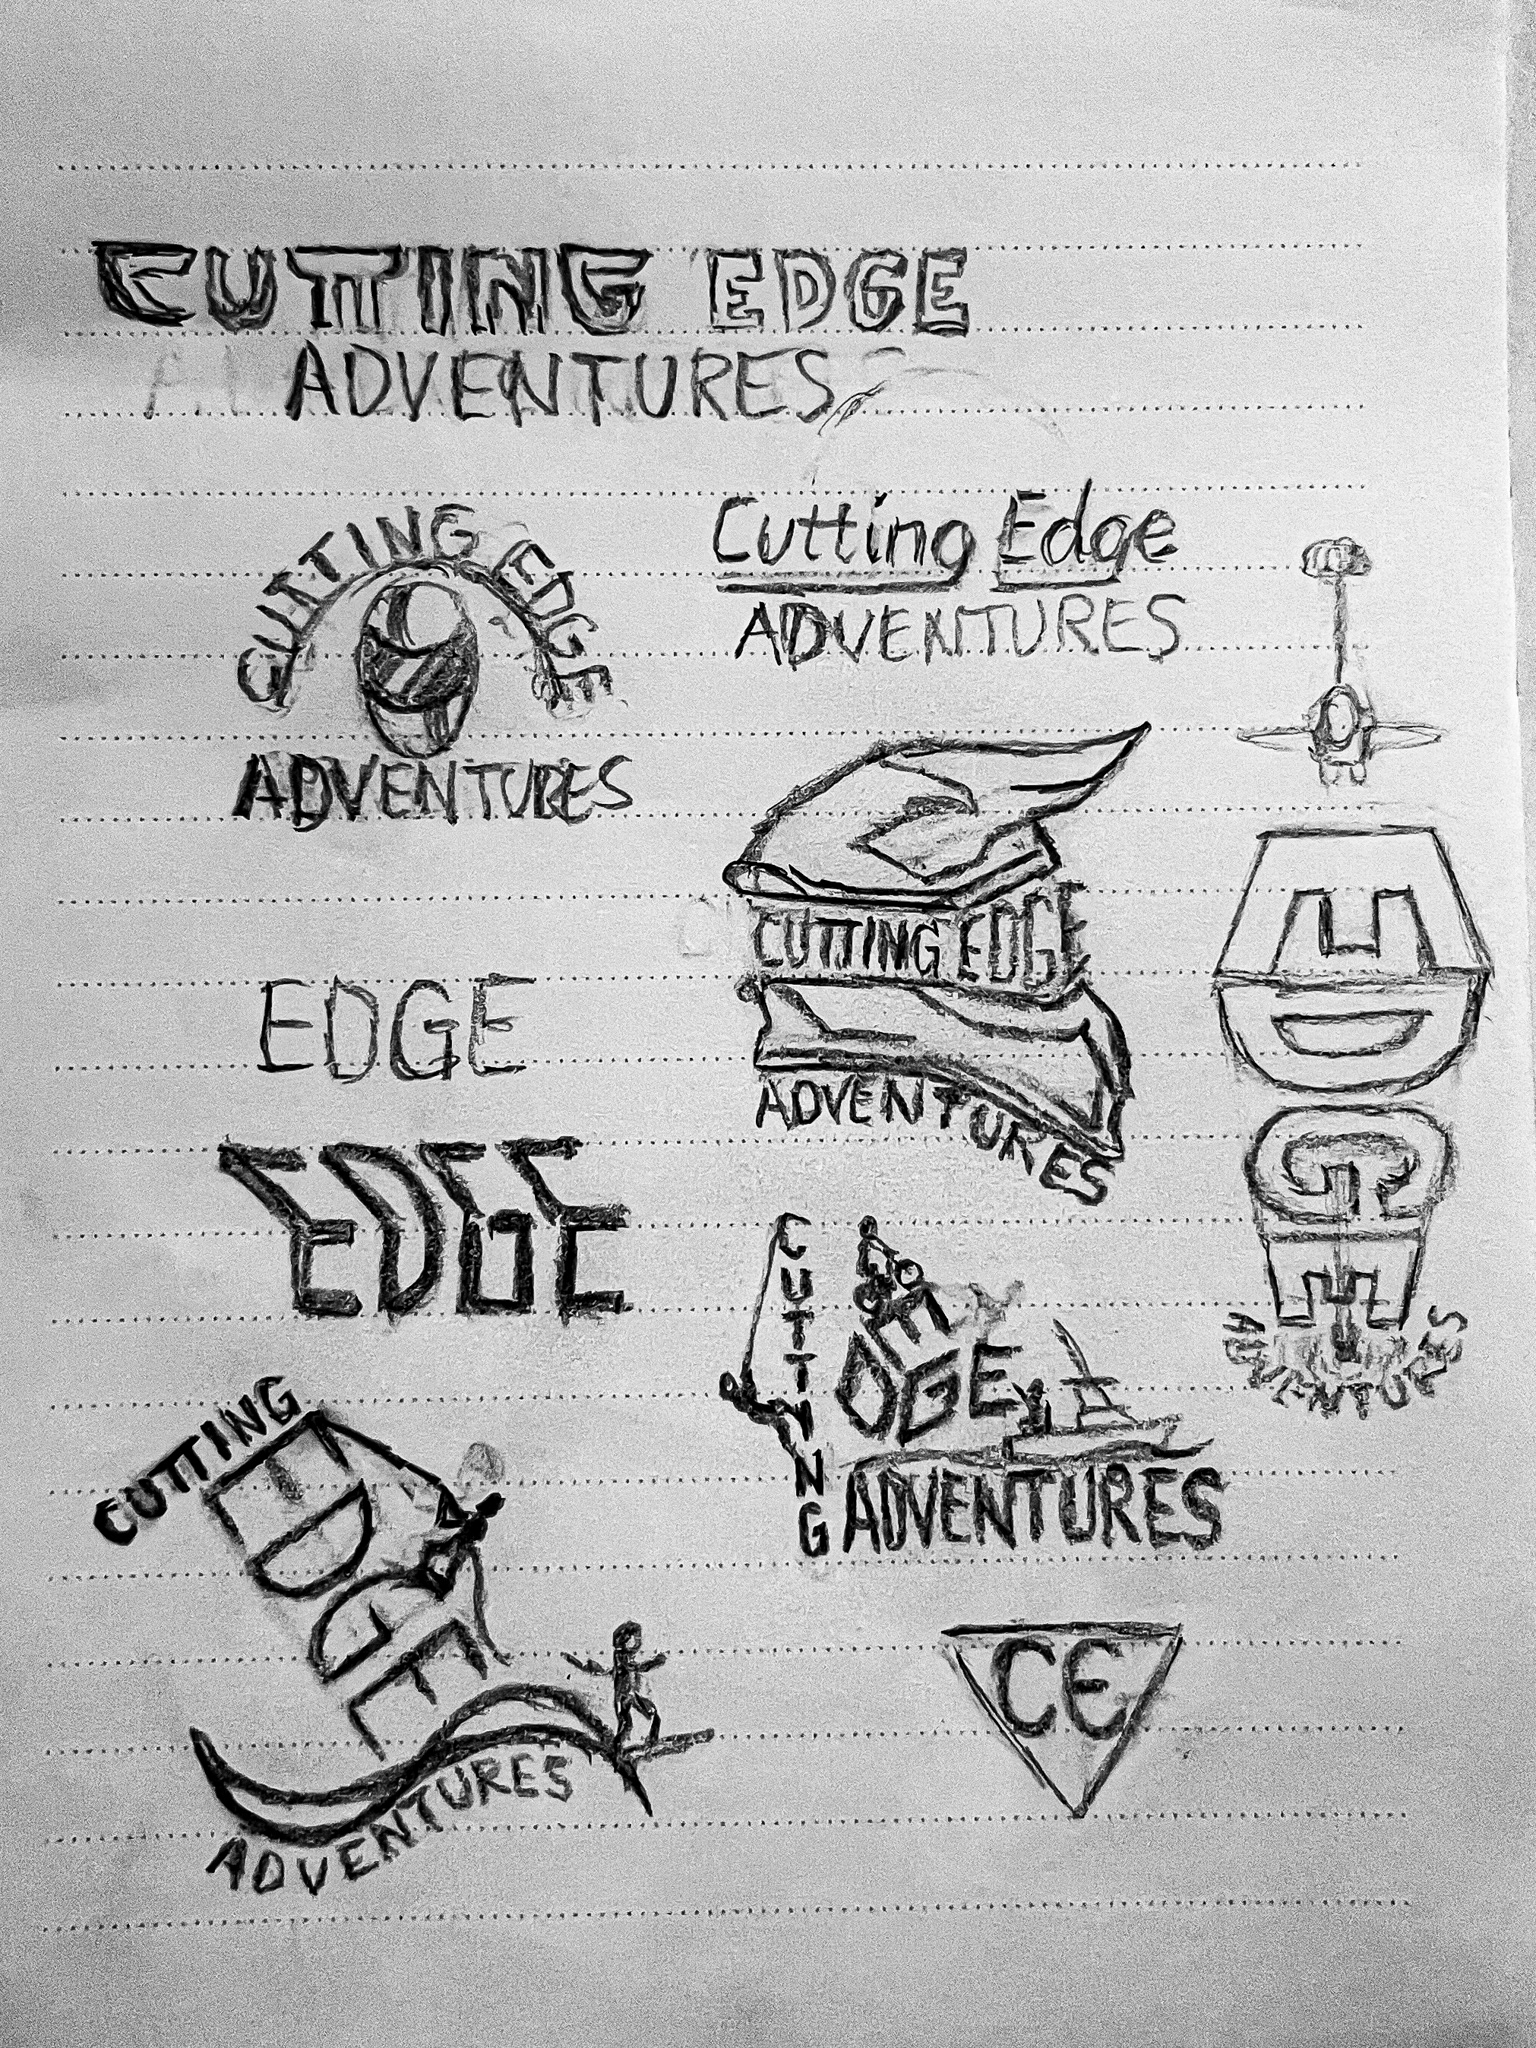 CUTTING EDGE
ADVENTURES
CUTTING EDGE
ADVENTURES
Cutting Edge
ADVENTURES
CUTTING EDGE
ADVENTURES
EDGE
EDGE
EDGE
ADVENTURES
CUTTING
EDGE
ADVENTURES
CUTTING
EDGE
ADVENTURES
CE